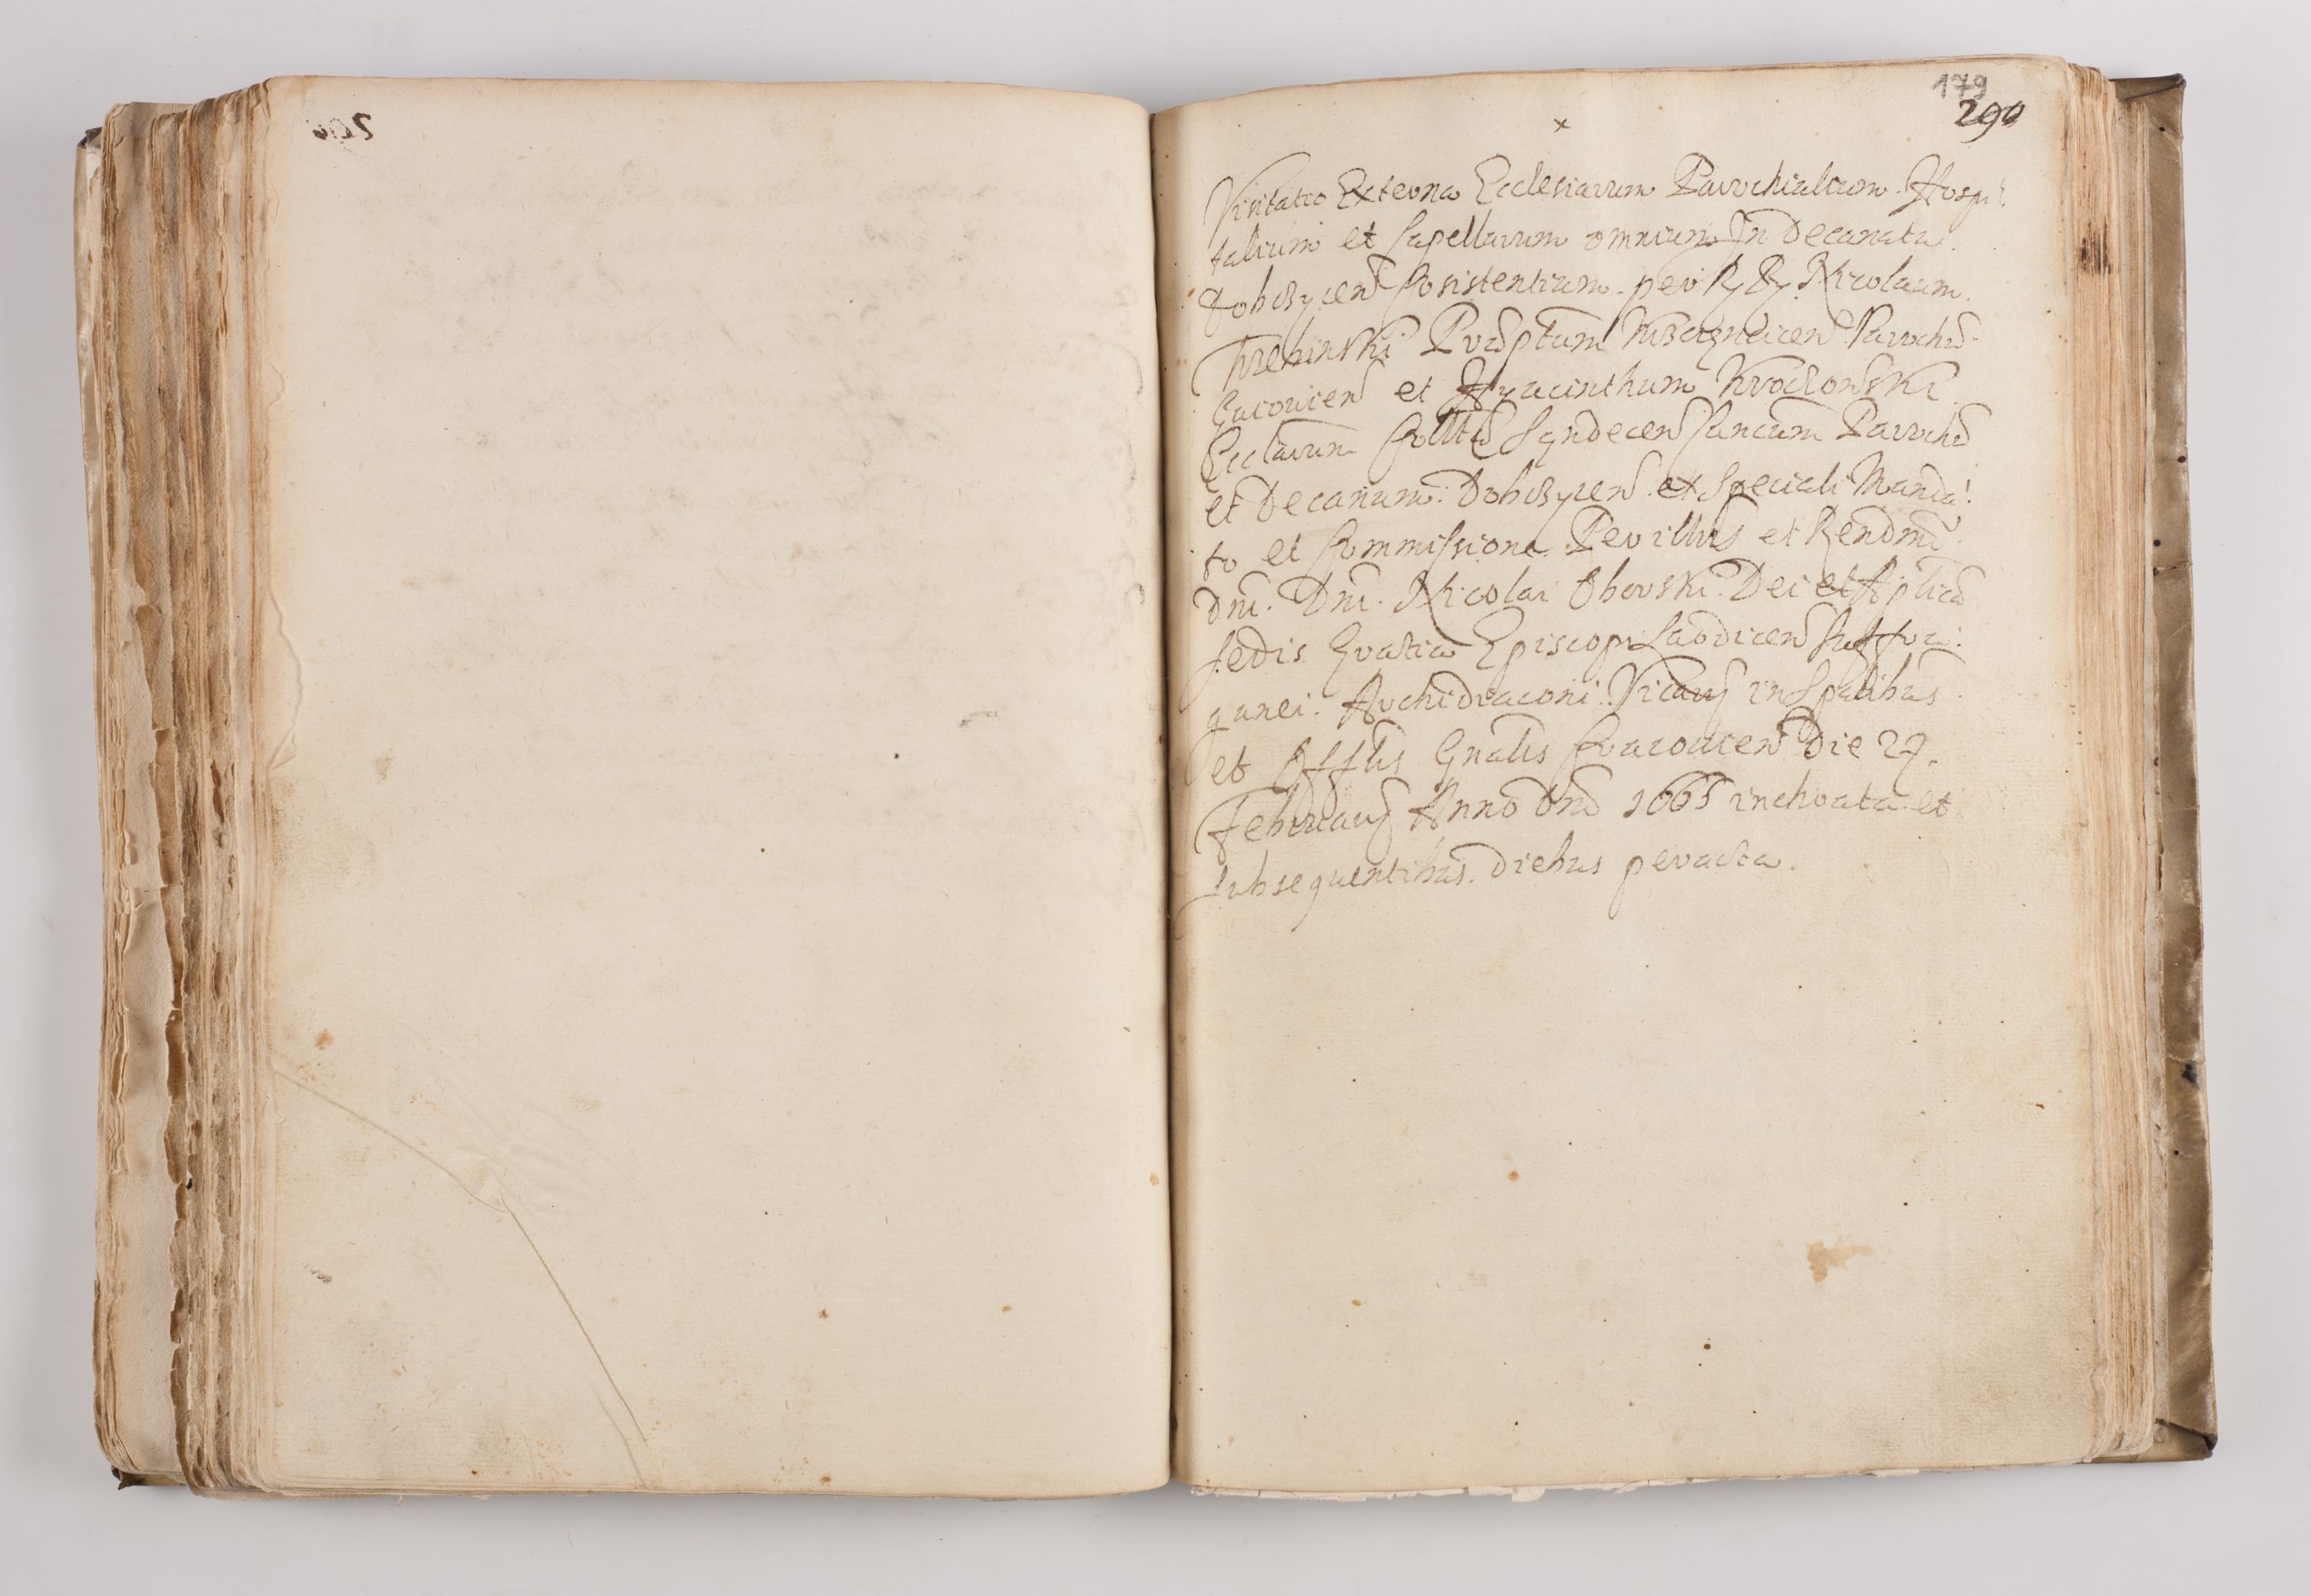 179
290
x
Visitatio Externa Ecclesiarum Parochialium. Hospi:
talium et Capellarum omnium In Decanatu
Dobczycen Consistentium. per RR. Nicolaum.
Trebinski Præptum Parochu
Gacovicen et Hyacinthum Kroczowski
Ecclarum Colltæ Syndecen Parochu
et Decanum. Dobczycen. ex Speciali Manda:
to et Commissione. Perillris et Rendmi
Dni. Dni. Nicolai Oborski. Dei et Aplicæ
Sedis Gratia Episcopi Laodicen Suffra:
ganei. Archidiaconi. Vicarij in Spalibus
et Offlis Gnalis Cracovien Die 27.
Februarij Anno Dni 1665 inchoata et
subsequentibus. diebus peracta.